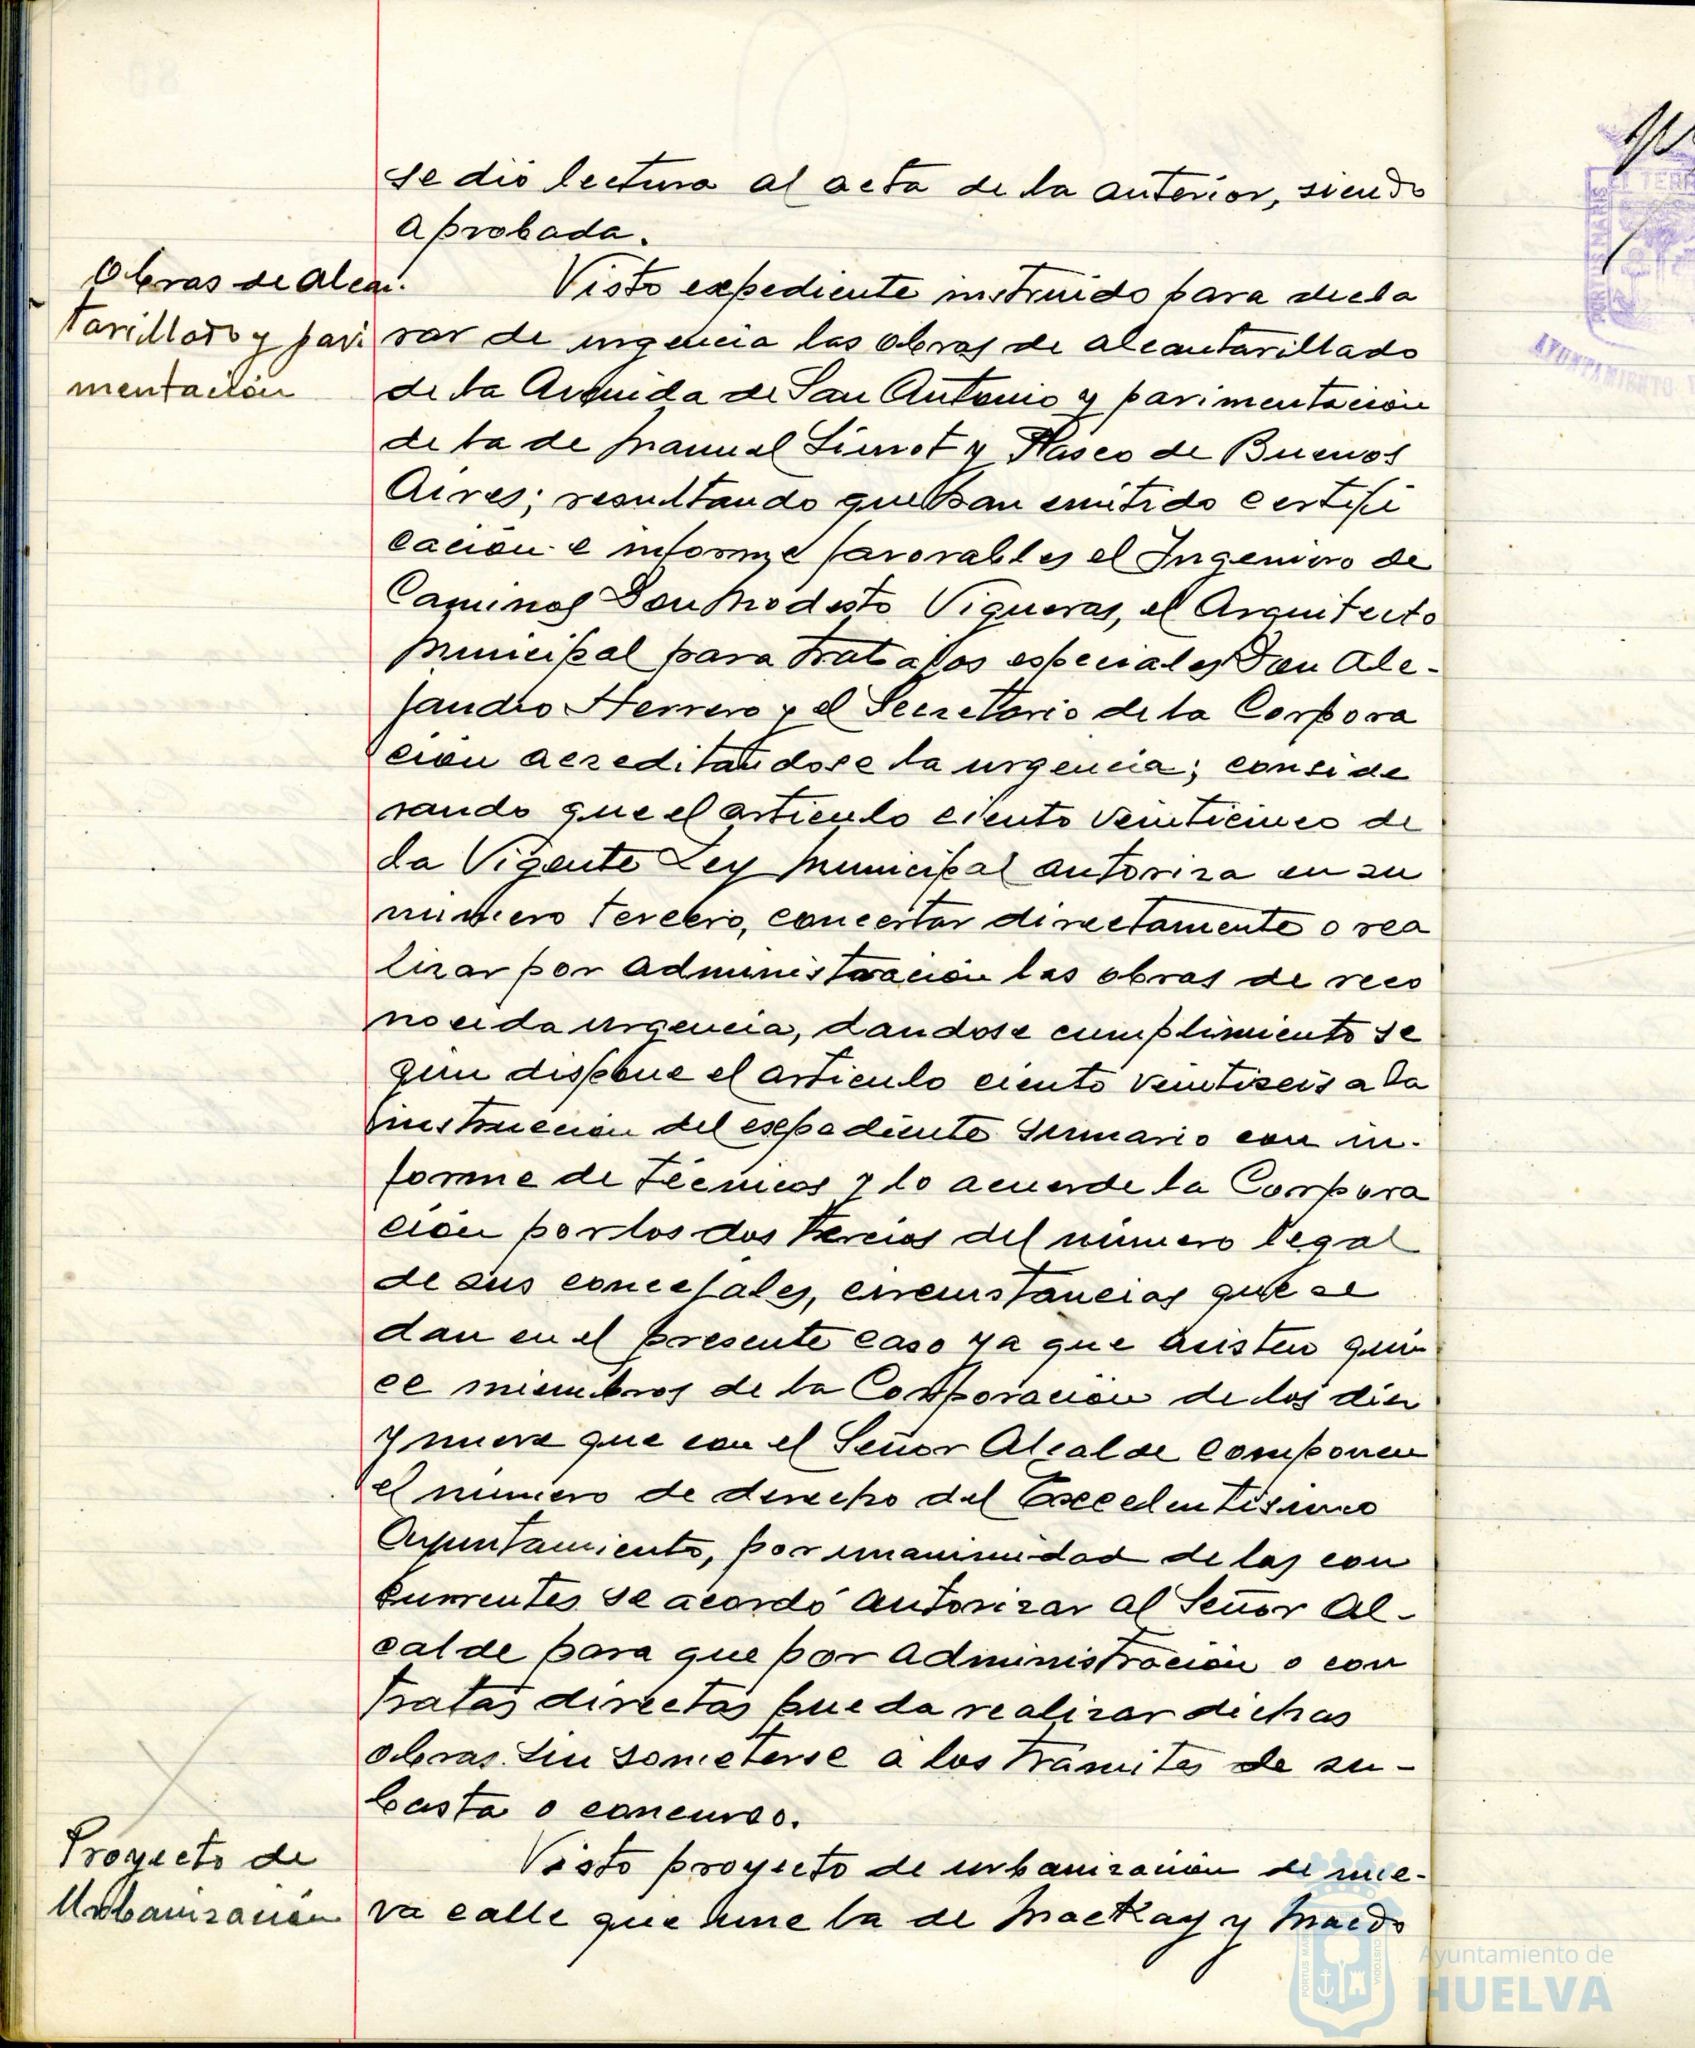 se dió lectura al acta de la anterior, siendo
aprobada.
Obras de alcan-
tarillado y pavi
mentación
Visto expediente instruido para decla
rar de urgencia las obras de alcantarillado
de la Avenida de San Antonio y pavimentación
de la de Manuel Siurot y Paseo de Buenos
Aires; resultando que han emitido certifi
cación e informe favorables el Ingeniero de
Caminos Don Modesto Vigueras, el Arquitecto
Municipal para trabajos especiales Don Ale-
jandro Herrero y el Secretario de la Corpora
ción acreditándose la urgencia; conside
rando que el artículo ciento veinticinco de
la Vigente Ley Municipal autoriza en su
número tercero, concertar directamente o rea
lizar por administración las obras de reco
nocida urgencia, dandose cumplimiento se
gún dispone el artículo ciento veintiseis a la
instrucción del expediente sumario con in-
forme de técnicos y lo acuerde la Corpora
ción por los dos tercios del número legal
de sus concejales, circunstancias que se
dan en el presente caso ya que asisten quin
ce miembros de la Corporación de los diez
y nueve que con el Señor Alcalde componen
el número de derecho del Excelentísimo
Ayuntamiento, por unanimidad de los con
currentes se acordó autorizar al Señor Al-
calde para que por administración o con
tratas directas pueda realizar dichas
obras sin someterse a los trámites de su-
basta o concurso.
Proyecto de
Urbanización
Visto proyecto de urbanización de nue-
va calle que une la de Mackay y Macdo
Ayuntamiento de
HUELVA
PORTUS MARIS
CUSTODIA
AYUNTAMIENTO